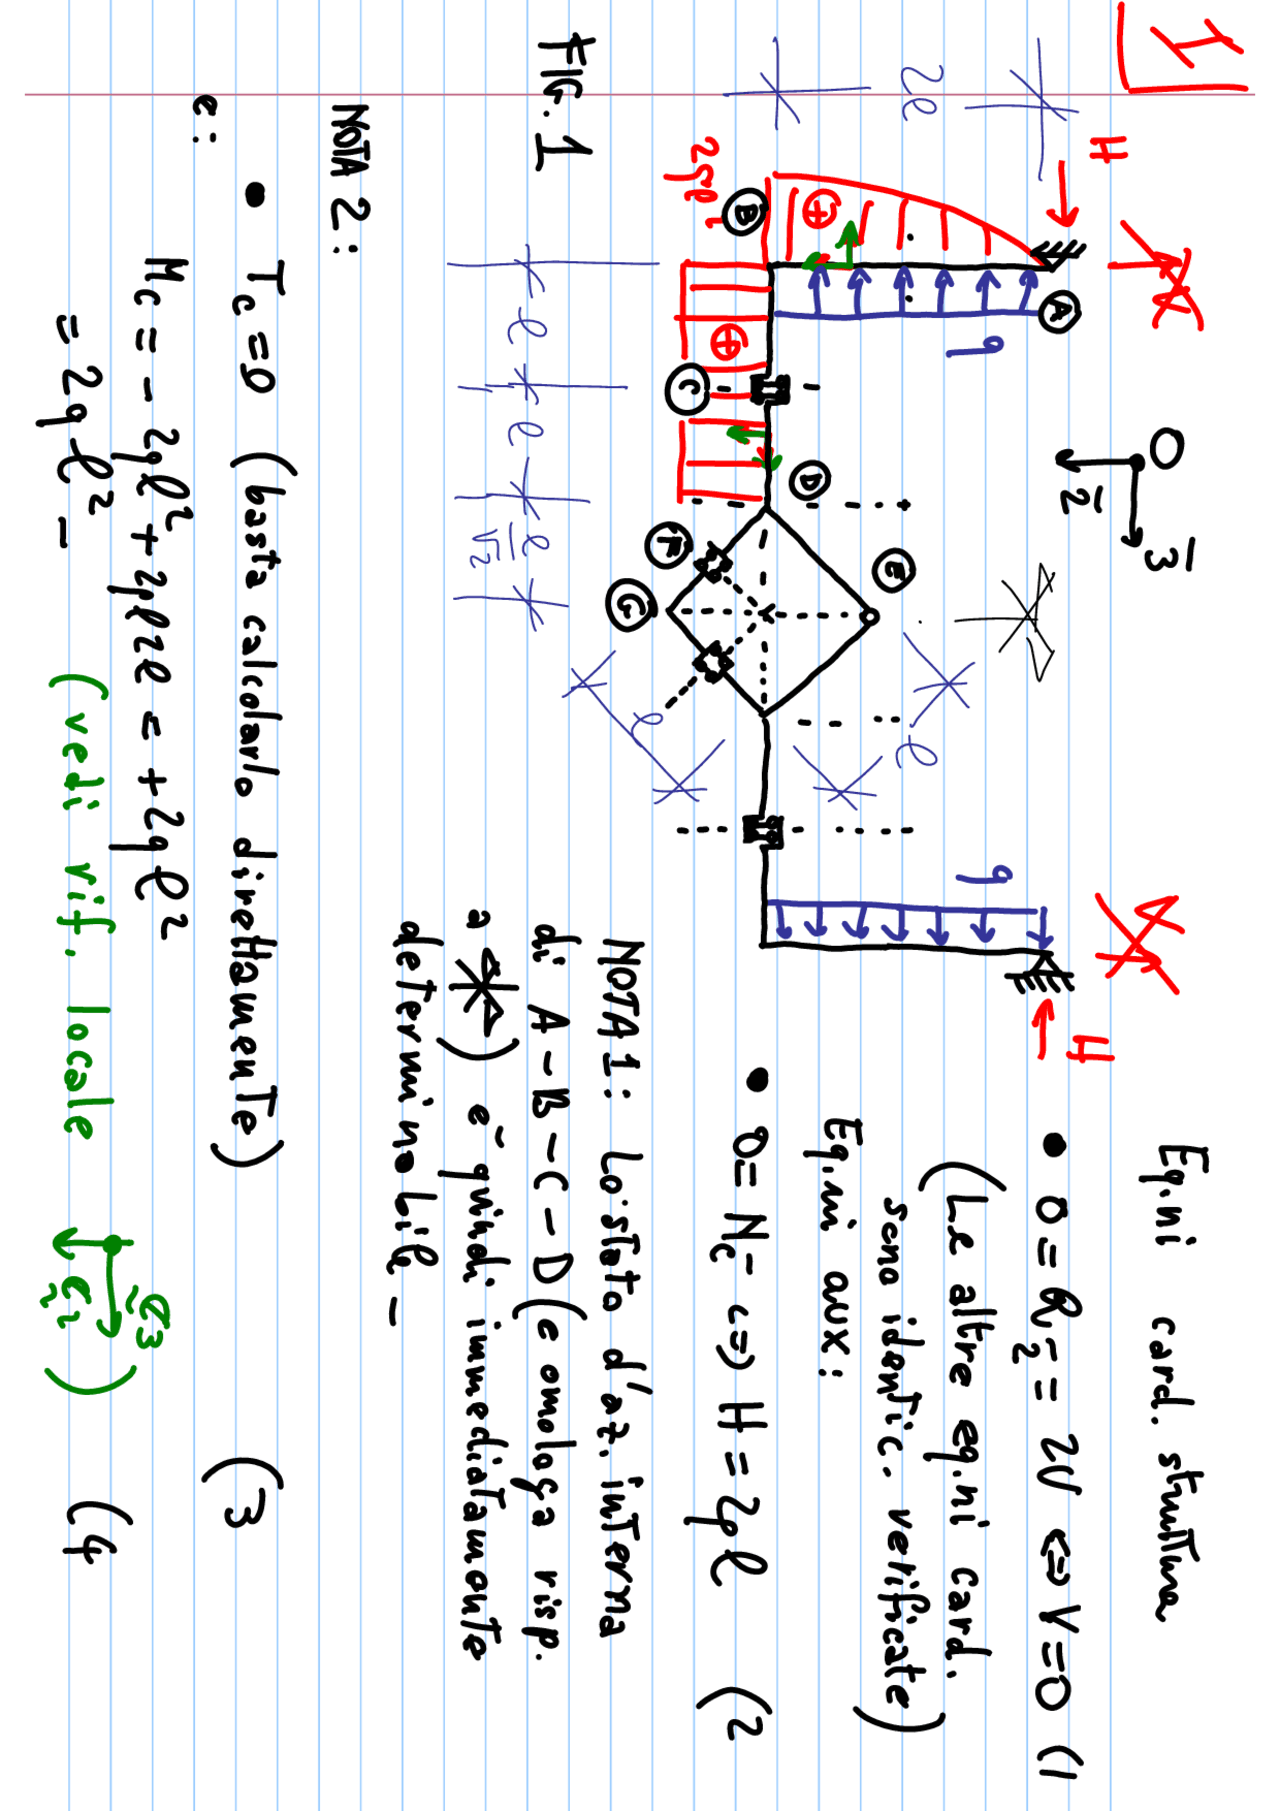 1
H
H
A
q
q
2l
B
2ql²
C
D
E
F
G
O
2
3
l
l
l/√2
l
l
FIG. 1
Eq.ni card. struttura
• O = R₂ = 2V <=> V = O (1
(Le altre eq.ni card.
sono identic. verificate)
Eq.ni aux:
• O = N_c <=> H = 2ql (2
NOTA 1: Lo stato d'az. interna
di A-B-C-D (e omologa risp.
a ) e` quindi immediatamente
determinabile –
NOTA 2:
e: • T_c = O (basta calcolarlo direttamente) (3
M_c = - 2ql² + 2ql2l = + 2ql²
= 2ql² – (vedi rif. locale e₃ e₂) (4